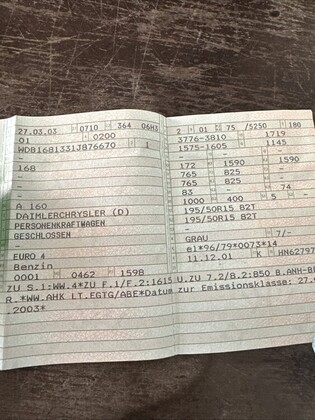 27.03.03 0710 364 06H3
01 0200
WDB1681331J876670 1
-
168
-
-
A 160
DAIMLERCHRYSLER (D)
PERSONENKRAFTWAGEN
GESCHLOSSEN
-
EURO 4
Benzin
0001 0462 1598
ZU S.1:WW.4*ZU F.1/F.2:1615
R.*WW.AHK LT.EGTG/ABE*Datum
.2003*
2 01 75 /5250 180
3776-3810 1719
1575-1605 1145
- -
172 1590 1590
765 825 -
765 825 -
83 - 74
1000 400 5 -
195/50R15 82T
195/50R15 82T
-
-
GRAU 7/-
e1*96/79*0073*14
11.12.01 K HN62797
U.ZU 7.2/8.2:850 B.ANH-B
zur Emissionsklasse: 27.